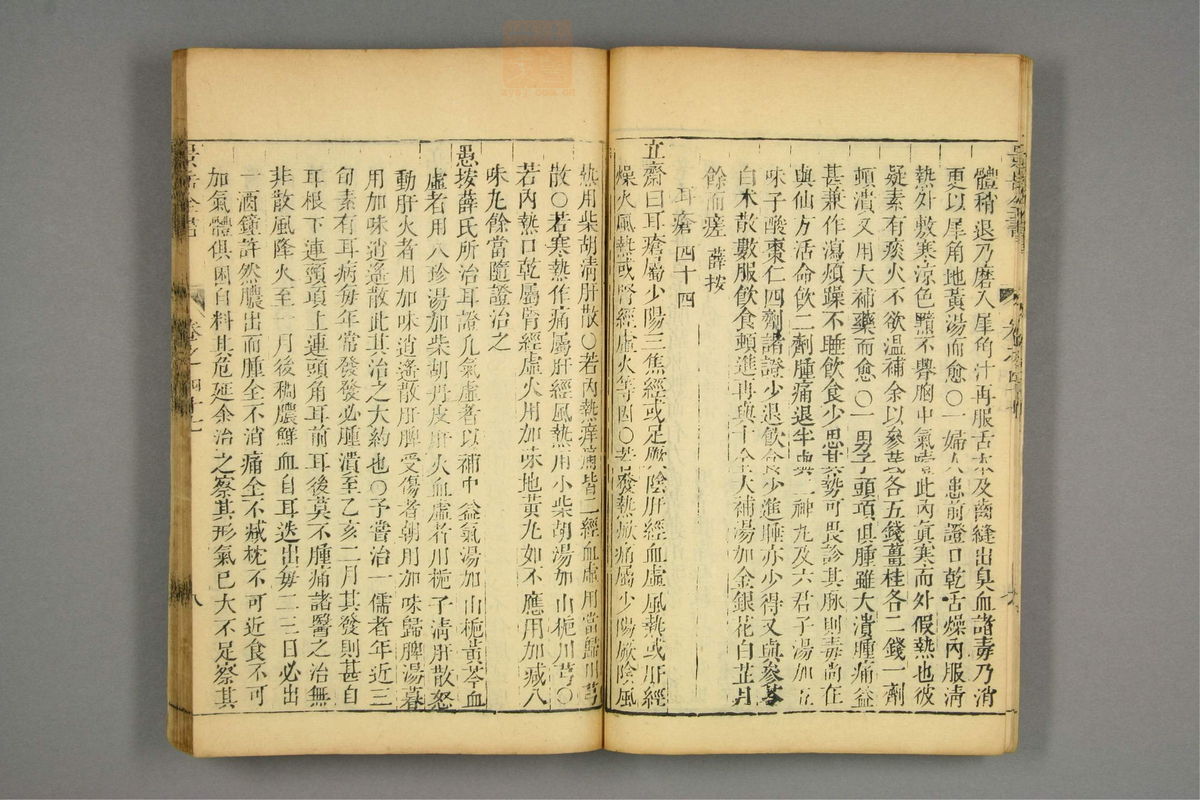 體稍退乃磨入犀角汁再服舌本及齒縫出臭血諸毒乃消
更以犀角地黃湯而愈〇一婦人患前證口乾舌燥內服清
熱外敷寒涼色黯不臀胸中氣噎此內眞寒而外假熱也彼
疑素有痰火不欲溫補余以參茋各五錢薑桂各二錢一劑
頓潰又用大補藥而愈〇一男子頭項俱腫雖大潰腫痛益
甚兼作瀉煩躁不睡飲食少思其勢可畏診其脉則毒尚在
與仙方活命飲二劑腫痛退半與二神丸及六君子湯加五
味子酸棗仁四劑諸證少退飲食少進睡亦少得又與參苓
白朮散數服飲食頓進再與十全大補湯加金銀花白芷月
餘而瘥 薛按
耳瘡 四十四
立齋曰耳瘡屬少陽三焦經或足厥陰肝經血虛風熱或肝經
燥火風熱或腎經虛火等因〇若發熱焮痛屬少陽厥陰風
熱用柴胡清肝散〇若內熱痒痛皆二經血虛用當歸川芎
散〇若寒熱作痛屬肝經風熱用小柴胡湯加山梔川芎〇
若內熱口乾屬腎經虛火用加味地黃丸如不應用加減八
味丸餘當隨證治之
愚按薛氏所治耳證凡氣虛者以補中益氣湯加山梔黃芩血
虛者用八珍湯加柴胡丹皮肝火血虛者用梔子清肝散怒
動肝火者用加味逍遙散肝脾受傷者朝用加味歸脾湯暮
用加味逍遙散此其治之大約也〇予嘗治一儒者年近三
旬素有耳病每年常發發必腫潰至乙亥二月其發則甚自
耳根下連頸項上連頭角耳前耳後莫不腫痛諸醫之治無
非散風降火至一月後稠膿鮮血自耳迸出每二三日必出
一酒鐘許然膿出而腫全不消痛全不減枕不可近食不可
加氣體俱困自料其危延余治之察其形氣已大不足察其
景岳全書
卷之四十七
八